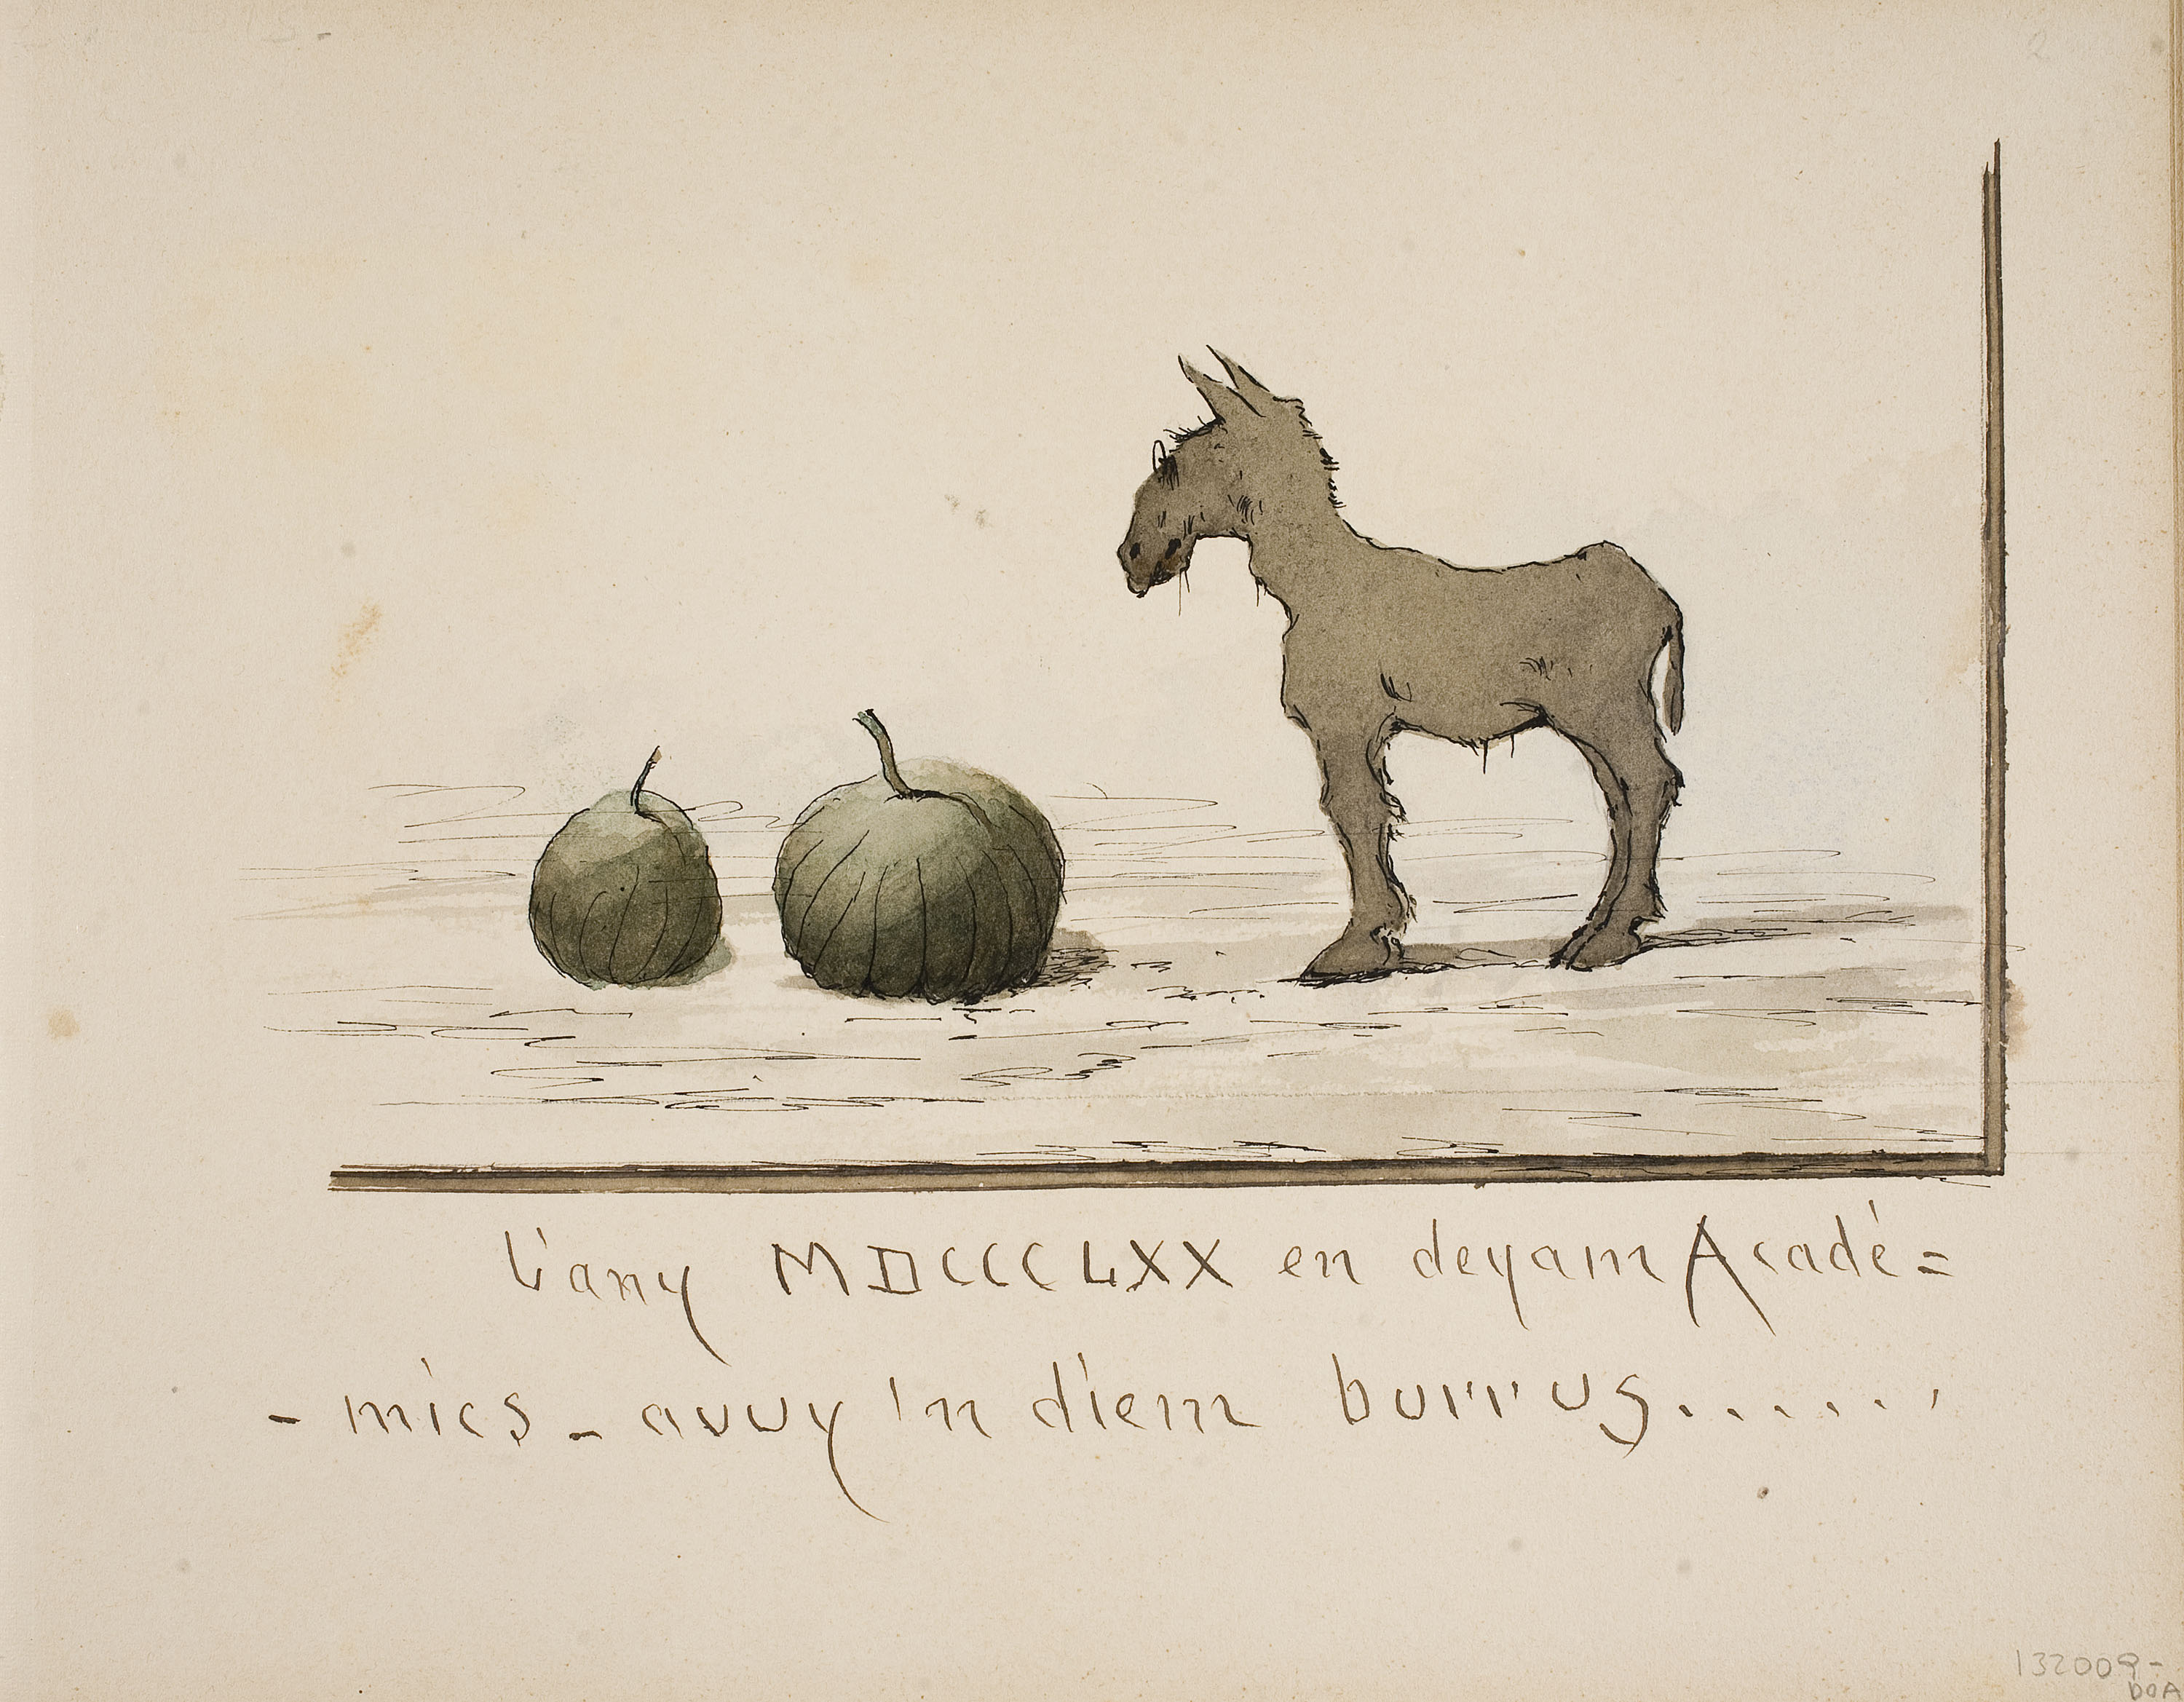 L'any MDCCCLXX en deyam Acadé=
- mics - avuy 'n diem burrus.......
132009-
DOA